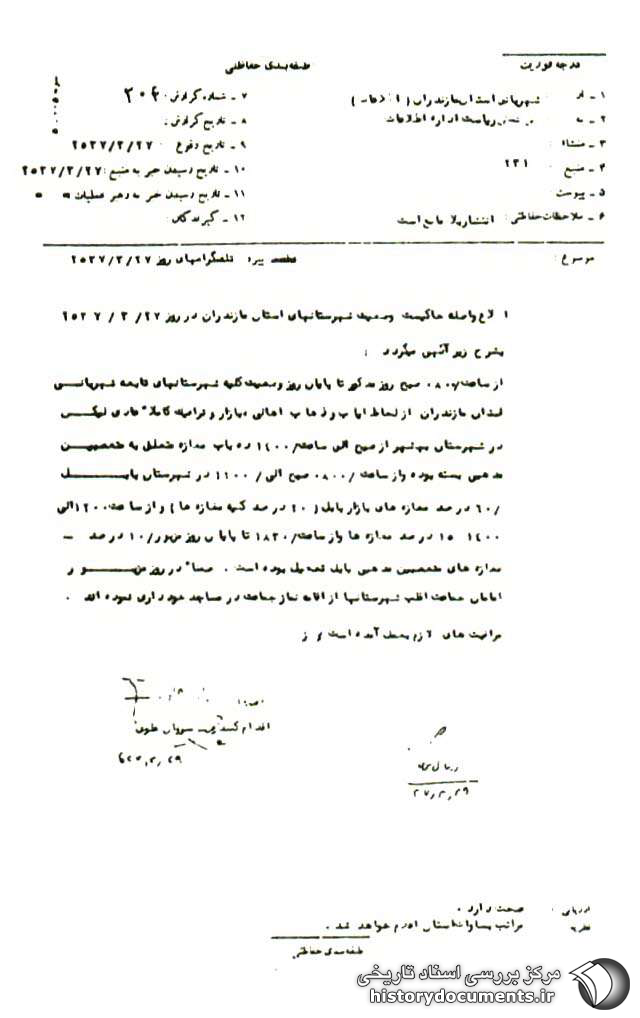 درجه فوریت
طبقه‌بندی حفاظتی
۱ ـ از شهربانی استان مازندران ( اطلاعات )
۲ ـ به ریاست اداره اطلاعات
۳ ـ منشاء :
۴ ـ منبع ۲۳۱
۵ ـ پیوست :
۶ ـ ملاحظات حفاظتی : انتشار بلا مانع است
۷ ـ شماره گزارش :
۸ ـ تاریخ گزارش :
۹ ـ تاریخ وقوع : ۲۵۳۷/۳/۲۷
۱۰ ـ تاریخ رسیدن خبر به منبع : ۲۵۳۷/۳/۲۷
۱۱ ـ تاریخ رسیدن خبر به رهبر عملیات " "
۱۲ ـ گیرندگان :
موضوع : تلگرامهای روز ۲۵۳۷/۳/۲۷
واصله حاکیست وضعیت شهرستانهای استان مازندران در روز ۲۷ / ۳ / ۲۵۳۷
بشرح زیر آگهی میگردد :
از ساعت /۰۸۰۰ صبح روز مذکور تا پایان روز وضعیت کلیه شهرستانهای تابعه شهربانی
استان مازندران از لحاظ ایاب و ذهاب اهالی و بازار و ترافیک کاملا" عادی لیکن
در شهرستان بهشهر از صبح الی ساعت /۱۴۰۰ ده باب مغازه متعلق به متعصبین
مذهبی بسته بوده و از ساعت /۰۸۰۰ صبح الی / ۱۱۰۰ در شهرستان بابل
/۶۰ در صد مغازه های بازار بابل ( ۲۰ در صد کلیه مغازه ها ) و از ساعت ۱۲۰۰ الی
۱۴۰۰ ۱۵ در صد مغازه ها و از ساعت /۱۸۳۰ تا پایان روز مزبور /۱۰ در صد ـ
مغازه های متعصبین مذهبی بابل تعطیل بوده است . ضمنا" در روز مزبور
امامان جماعت اغلب شهرستانها از اقامه نماز جماعت در مساجد خودداری نموده اند .
مراقبت های لازم بعمل آمده است
اقدام کننده
ارزیابی : صحت دارد .
نظریه مراتب بساواک استان اعلام خواهد شد .
طبقه بندی حفاظتی
مرکز بررسی اسناد تاریخی
historydocuments.ir